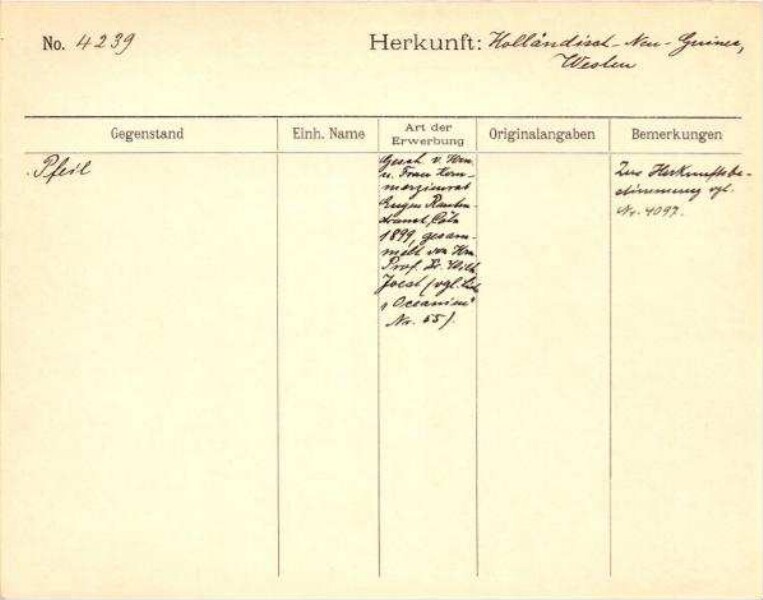 No. 4239
Herkunft: Holländisch-Neu-Guinea,
Westen
Gegenstand
Einh. Name
Art der
Erwerbung
Originalangaben
Bemerkungen
Pfeil
Gesch. v. Hrn.
u. Frau Kom-
merzienrat
Eugen Rauten-
strauch, Cöln
1899, gesam-
melt von Hrn.
Prof. Dr. Wilh.
Joest (vgl. Liste
"Oceanien"
Nr. 55).
Zur Herkunftsbe-
stimmung vgl.
Nr. 4097.